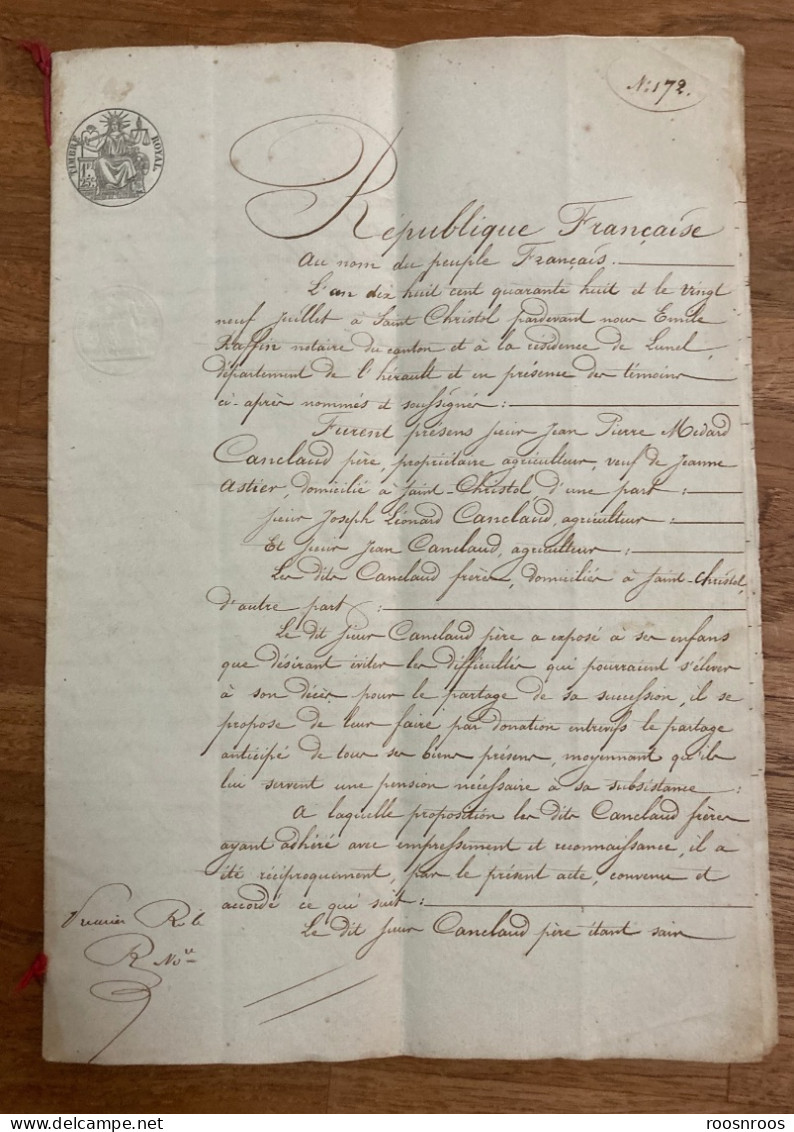 N: 172.
TIMBRE ROYAL
République Française
Au nom du peuple Français.
L'an dix huit cent quarante huit et le vingt
neuf Juillet à Saint Christol pardevant nous Emile
notaire du canton et à la résidence de Lunel,
département de l'hérault et en présence des témoins
ci-après nommés et soussignés :
Furent présens sieur Jean Pierre Médard
Canclaud père, propriétaire agriculteur, veuf de Jeanne
Astier, domicilié à Saint-Christol, d'une part :
sieur Joseph Léonard Canclaud, agriculteur :
Et sieur Jean Canclaud, agriculteur :
Les dits Canclaud frères, domiciliés à Saint-Christol,
d'autre part :
Le dit sieur Canclaud père a exposé à ses enfans
que désirant éviter les difficultés qui pourraient s'élever
à son décès pour le partage de sa succession, il se
propose de leur faire par donation entrevifs le partage
anticipé de tous ses biens présens, moyennant qu'ils
lui servent une pension nécessaire à sa subsistance :
A laquelle proposition les dits Canclaud frères
ayant adhéré avec empressement et reconnaissance, il a
été réciproquement, par le présent acte, convenu et
accordé ce qui suit :
Le dit sieur Canclaud père étant sain
Premier Rôle
R Nre
roosnroos